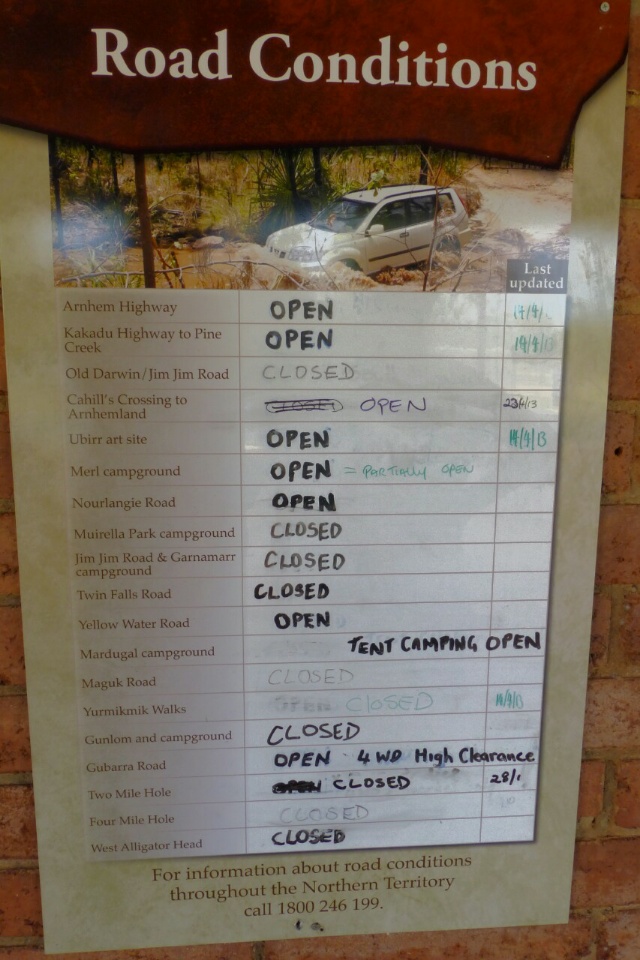 Road Conditions
Last
updated
Arnhem Highway OPEN
Kakadu Highway to Pine
Creek OPEN
Old Darwin/Jim Jim Road CLOSED
Cahill's Crossing to
Arnhemland CLOSED OPEN
Ubirr art site OPEN 14/4/13
Merl campground OPEN = PARTIALLY OPEN
Nourlangie Road OPEN
Muirella Park campground CLOSED
Jim Jim Road & Garnamarr
campground CLOSED
Twin Falls Road CLOSED
Yellow Water Road OPEN
Mardugal campground TENT CAMPING OPEN
Maguk Road CLOSED
Yurmikmik Walks OPEN CLOSED
Gunlom and campground CLOSED
Gubarra Road OPEN 4WD High Clearance
Two Mile Hole OPEN CLOSED
Four Mile Hole CLOSED
West Alligator Head CLOSED
For information about road conditions
throughout the Northern Territory
call 1800 246 199.